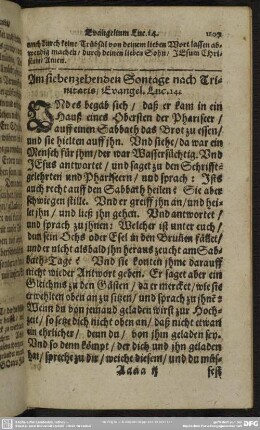 Evangelium Luc. 14.
auch durch keine Trübsal von deinem lieben Wort lassen ab-
wendig machen / durch deinen lieben Sohn / JEsum Chri-
stum / Amen.
Am siebenzehenden Sontage nach Tri-
nitatis / Evangel. Luc. 14.
UNd es begab sich / daß er kam in ein
Hauß eines Obersten der Phariseer /
auff einen Sabbath das Brot zu essen /
und sie hielten auff jhn. Und siehe / da war ein
Mensch für jhm / der war Wassersüchtig. Und
JEsus antwortet / und saget zu den Schrifft-
gelehrten und Phariseern / und sprach: Ists
auch recht auff den Sabbath heilen? Sie aber
schwiegen stille. Und er greiff jhn an / und hei-
let jhn / und ließ jhn gehen. Und antwortet /
und sprach zu jhnen: Welcher ist unter euch /
dem sein Ochs oder Esel in den Brunnen fället /
und er nicht alsbald jhn heraus zeucht am Sab-
bath-Tage? Und sie konten jhme darauff
nicht wieder Antwort geben. Er saget aber ein
Gleichnis zu den Gästen / da er mercket / wie sie
erwehlten oben an zu sitzen / und sprach zu jhnē:
Wenn du von jemand geladen wirst zur Hoch-
zeit / so setze dich nicht oben an / daß nicht etwan
ein ehrlicher / denn du / von jhm geladen sey.
Und so denn kömpt / der dich und jhn geladen
hat / spreche zu dir / weiche diesem / und du must
Aaaa